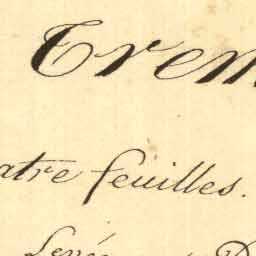 Trem
atre feuilles.